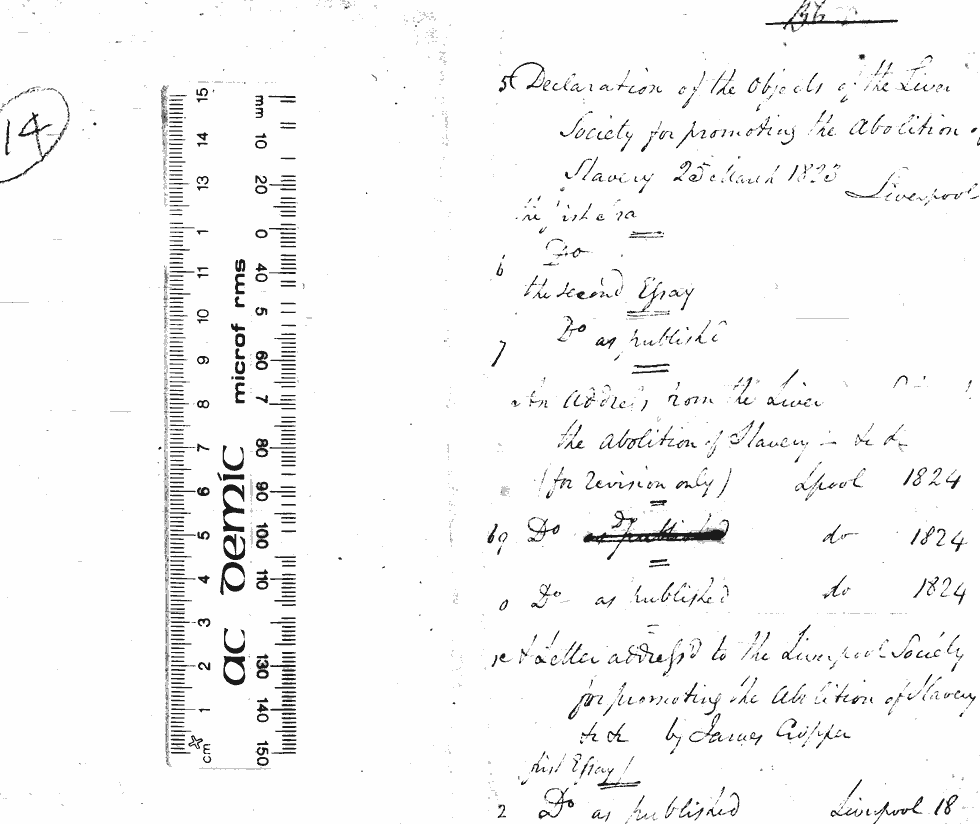 14
5 Declaration of the Objects of the Liver
Society for promoting the Abolition of
Slavery 25 March 1823 Liverpool
the
6 Do
the second Essay
7 Do as publishd
An Address from the Liver
the Abolition of Slavery &c &c
(for revision only) Lpool 1824
9 Do as published do 1824
0 Do as published do 1824
A Letter address'd to the Liverpool Society
for promoting the Abolition of Slavery
&c &c by James Cropper
first Essay
2 Do as published Liverpool 18
mm 10 20 0 40 5 60 7 80 90 100 110 130 140 150
microf rms
ac demic
15 14 13 1 11 10 9 8 7 6 5 4 3 2 1
cm